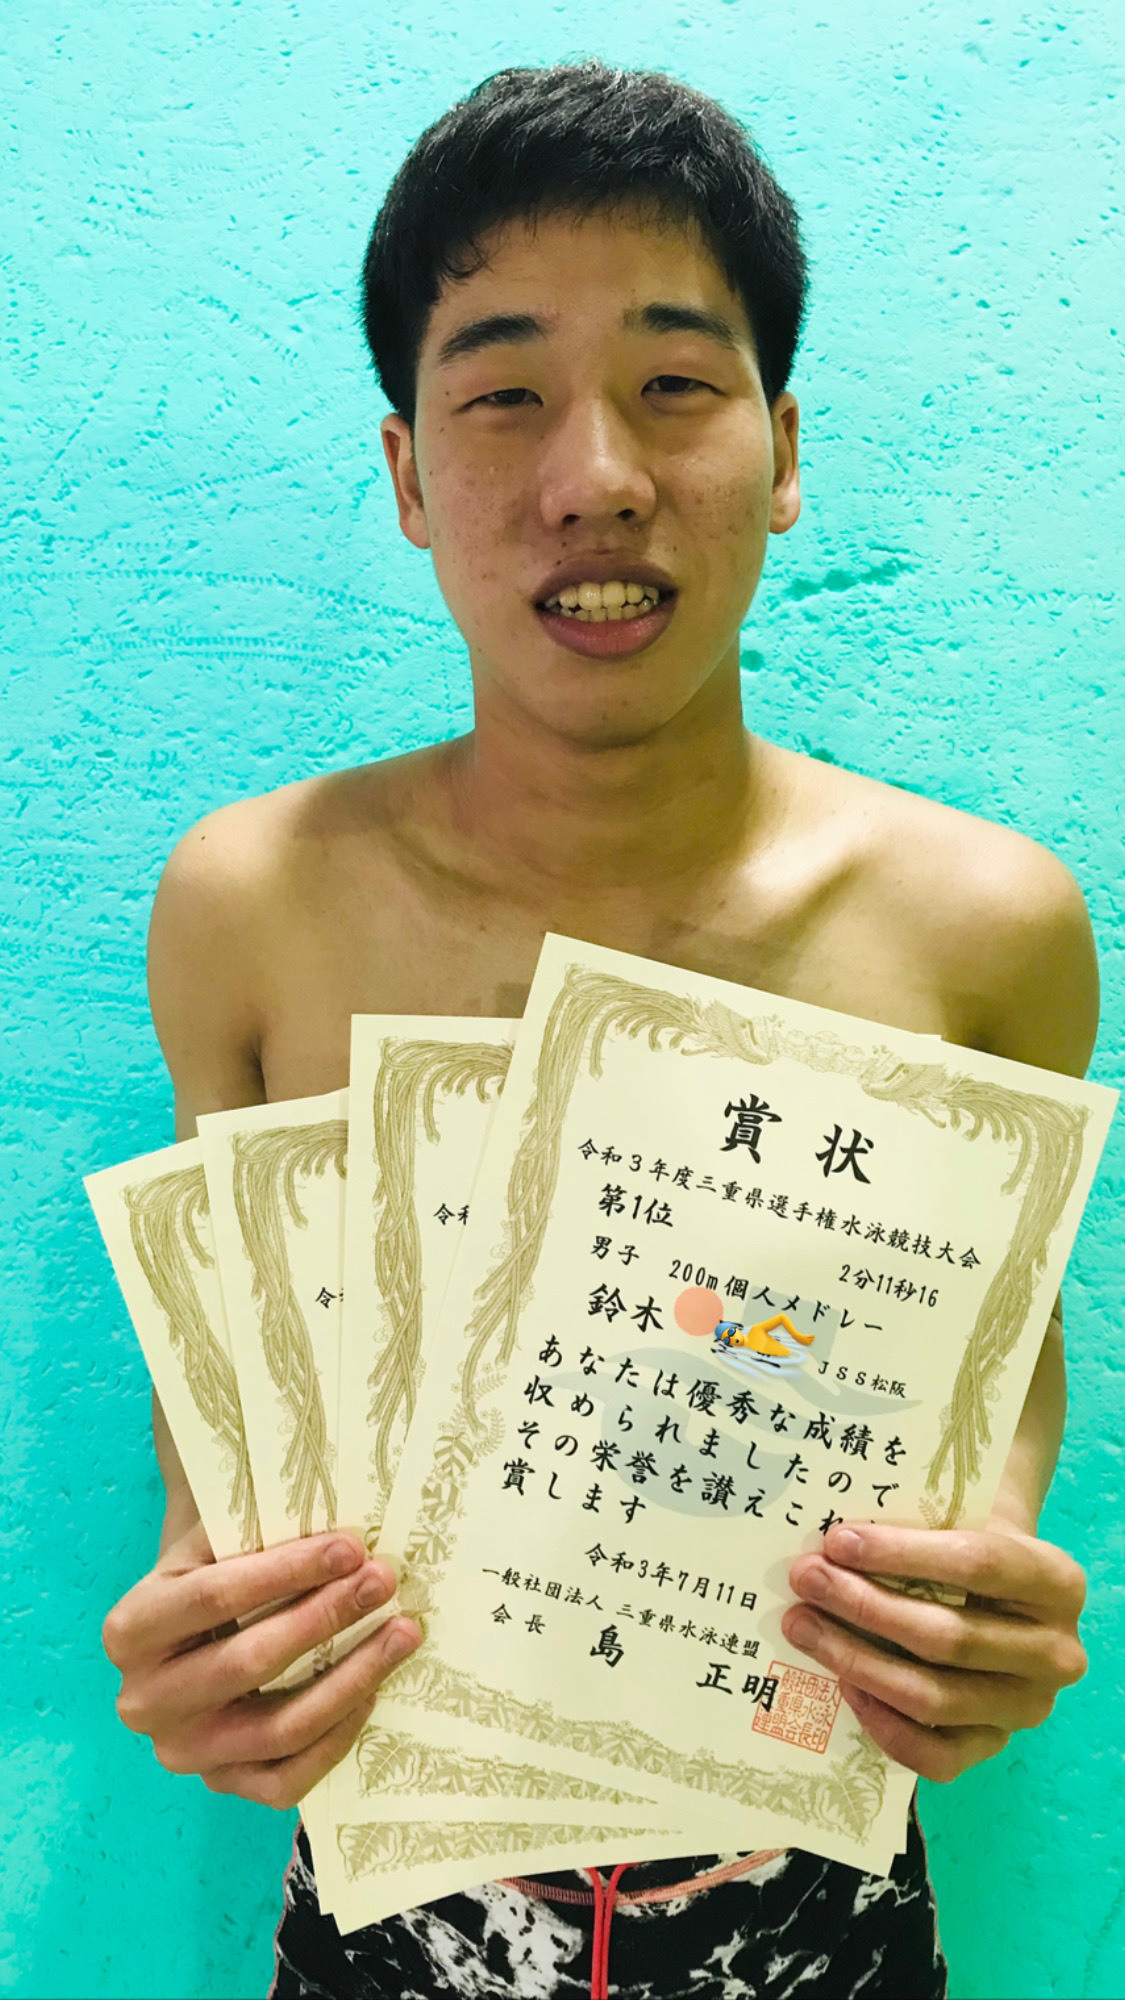 賞状
令和3年度三重県選手権水泳競技大会
第1位
2分11秒16
男子 200m個人メドレー
鈴木
JSS松阪
あなたは優秀な成績を
収められましたので
その栄誉を讃えこれ
賞します
令和3年7月11日
一般社団法人 三重県水泳連盟
会長 島 正明
令和
令